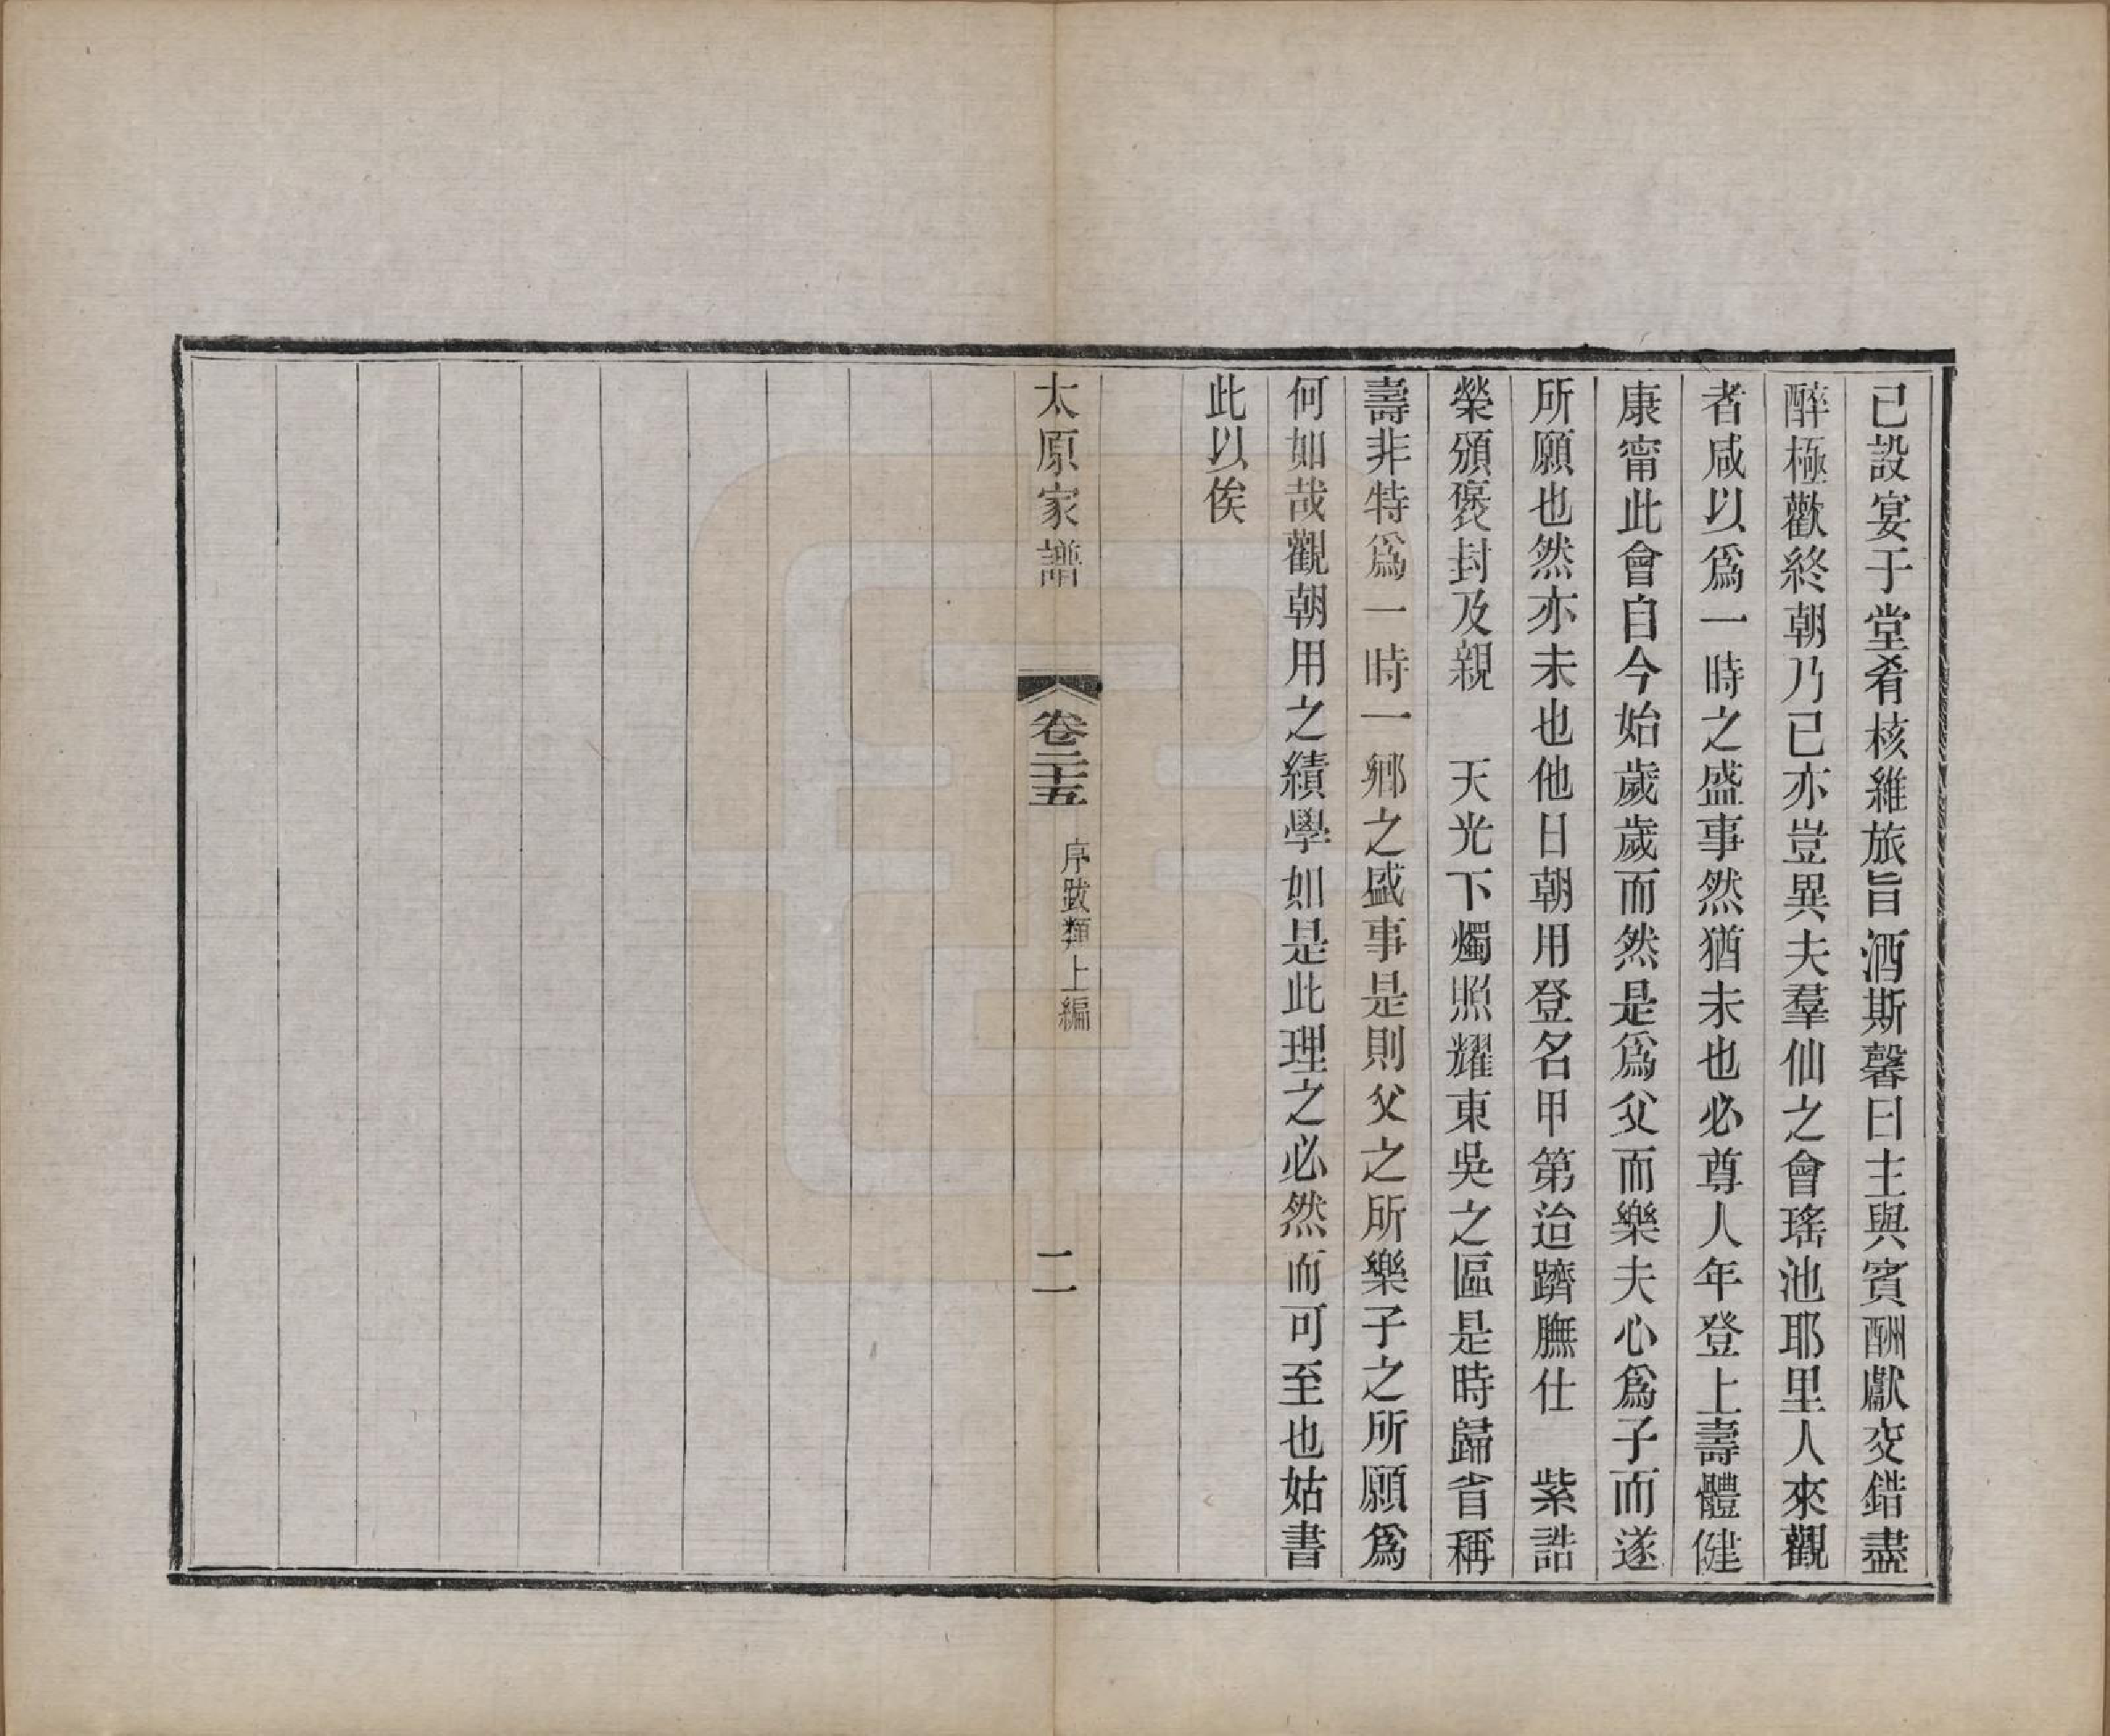 已設宴于堂肴核維旅旨酒斯馨曰主與賓酬獻交錯盡
醉極歡終朝乃已亦豈異夫羣仙之會瑤池耶里人來觀
者咸以爲一時之盛事然猶未也必尊人年登上壽體健
康甯此會自今始歲歲而然是爲父而樂夫心爲子而遂
所願也然亦未也他日朝用登名甲第迨躋膴仕　紫誥
榮頒褒封及親　天光下燭照耀東吳之區是時歸省稱
壽非特爲一時一鄉之盛事是則父之所樂子之所願爲
何如哉觀朝用之績學如是此理之必然而可至也姑書
此以俟
太原家譜
卷二十五
序跋類上編
二